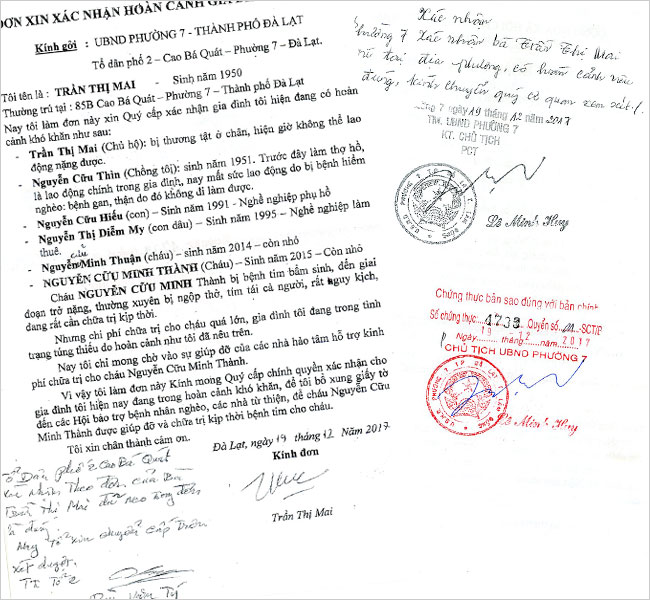 ĐƠN XIN XÁC NHẬN HOÀN CẢNH GIA
Kính gởi : UBND PHƯỜNG 7 - THÀNH PHỐ ĐÀ LẠT
Tổ dân phố 2 – Cao Bá Quát – Phường 7 – Đà Lạt.
Tôi tên là : TRẦN THỊ MAI - Sinh năm 1950
Thường trú tại : 85B Cao Bá Quát – Phường 7 – Thành phố Đà Lạt
Nay tôi làm đơn này xin Quý cấp xác nhận gia đình tôi hiện đang có hoàn
cảnh khó khăn như sau:
- Trần Thị Mai (Chủ hộ): bị thương tật ở chân, hiện giờ không thể lao
động nặng được.
- Nguyễn Cửu Thìn (Chồng tôi): sinh năm 1951. Trước đây làm thợ hồ,
là lao động chính trong gia đình, nay mất sức lao động do bị bệnh hiểm
nghèo: bệnh gan, thận do đó không đi làm được.
- Nguyễn Cửu Hiếu (con) – Sinh năm 1991 - Nghề nghiệp phụ hồ
- Nguyễn Thị Diễm My (con dâu) – Sinh năm 1995 – Nghề nghiệp làm
thuê.
- Nguyễn cửu Minh Thuận (cháu) – sinh năm 2014 – còn nhỏ
- NGUYỄN CỬU MINH THÀNH (Cháu) – Sinh năm 2015 – Còn nhỏ
Cháu NGUYỄN CỬU MINH Thành bị bệnh tim bẩm sinh, đến giai
đoạn trở nặng, thường xuyên bị ngộp thở, tím tái cả người, rất nguy kịch,
đang rất cần chữa trị kịp thời.
Nhưng chi phí chữa trị cho cháu quá lớn, gia đình tôi đang trong tình
trạng túng thiếu do hoàn cảnh như tôi đã nêu trên.
Nay tôi chỉ mong chờ vào sự giúp đỡ của các nhà hảo tâm hỗ trợ kinh
phí chữa trị cho cháu Nguyễn Cửu Minh Thành.
Vì vậy tôi làm đơn này Kính mong Quý cấp chính quyền xác nhận cho
gia đình tôi hiện nay đang trong hoàn cảnh khó khăn, để tôi bổ xung giấy tờ
đến các Hội bảo trợ bệnh nhân nghèo, các nhà từ thiện, để cháu Nguyễn Cửu
Minh Thành được giúp đỡ và chữa trị kịp thời bệnh tim cho cháu.
Tôi xin chân thành cảm ơn.
Đà Lạt, ngày 19 tháng 12 Năm 2017
Kính đơn
Trần Thị Mai
Tổ Dân phố 2 Cao Bá Quát
xác nhận theo đơn của Bà
Trần Thị Mai đã nêo trong đơn
là đúng.
Nay Tổ xin chuyển cấp trên
xét duyệt.
TT Tổ 2
Xác nhận
Phường 7 xác nhận bà Trần Thị Mai
địa phương, có hoàn cảnh nêu
đúng, kính chuyển quý cơ quan xem xét./.
7 ngày 19 tháng 12 năm 2017
TM. UBND PHƯỜNG 7
KT. CHỦ TỊCH
PCT
Lê Minh Huy
Chứng thực bản sao đúng với bản chính
Số chứng thực 4733 Quyển số 01-SCT/P
Ngày 19 tháng 12 năm 2017
CHỦ TỊCH UBND PHƯỜNG 7
Lê Minh Huy